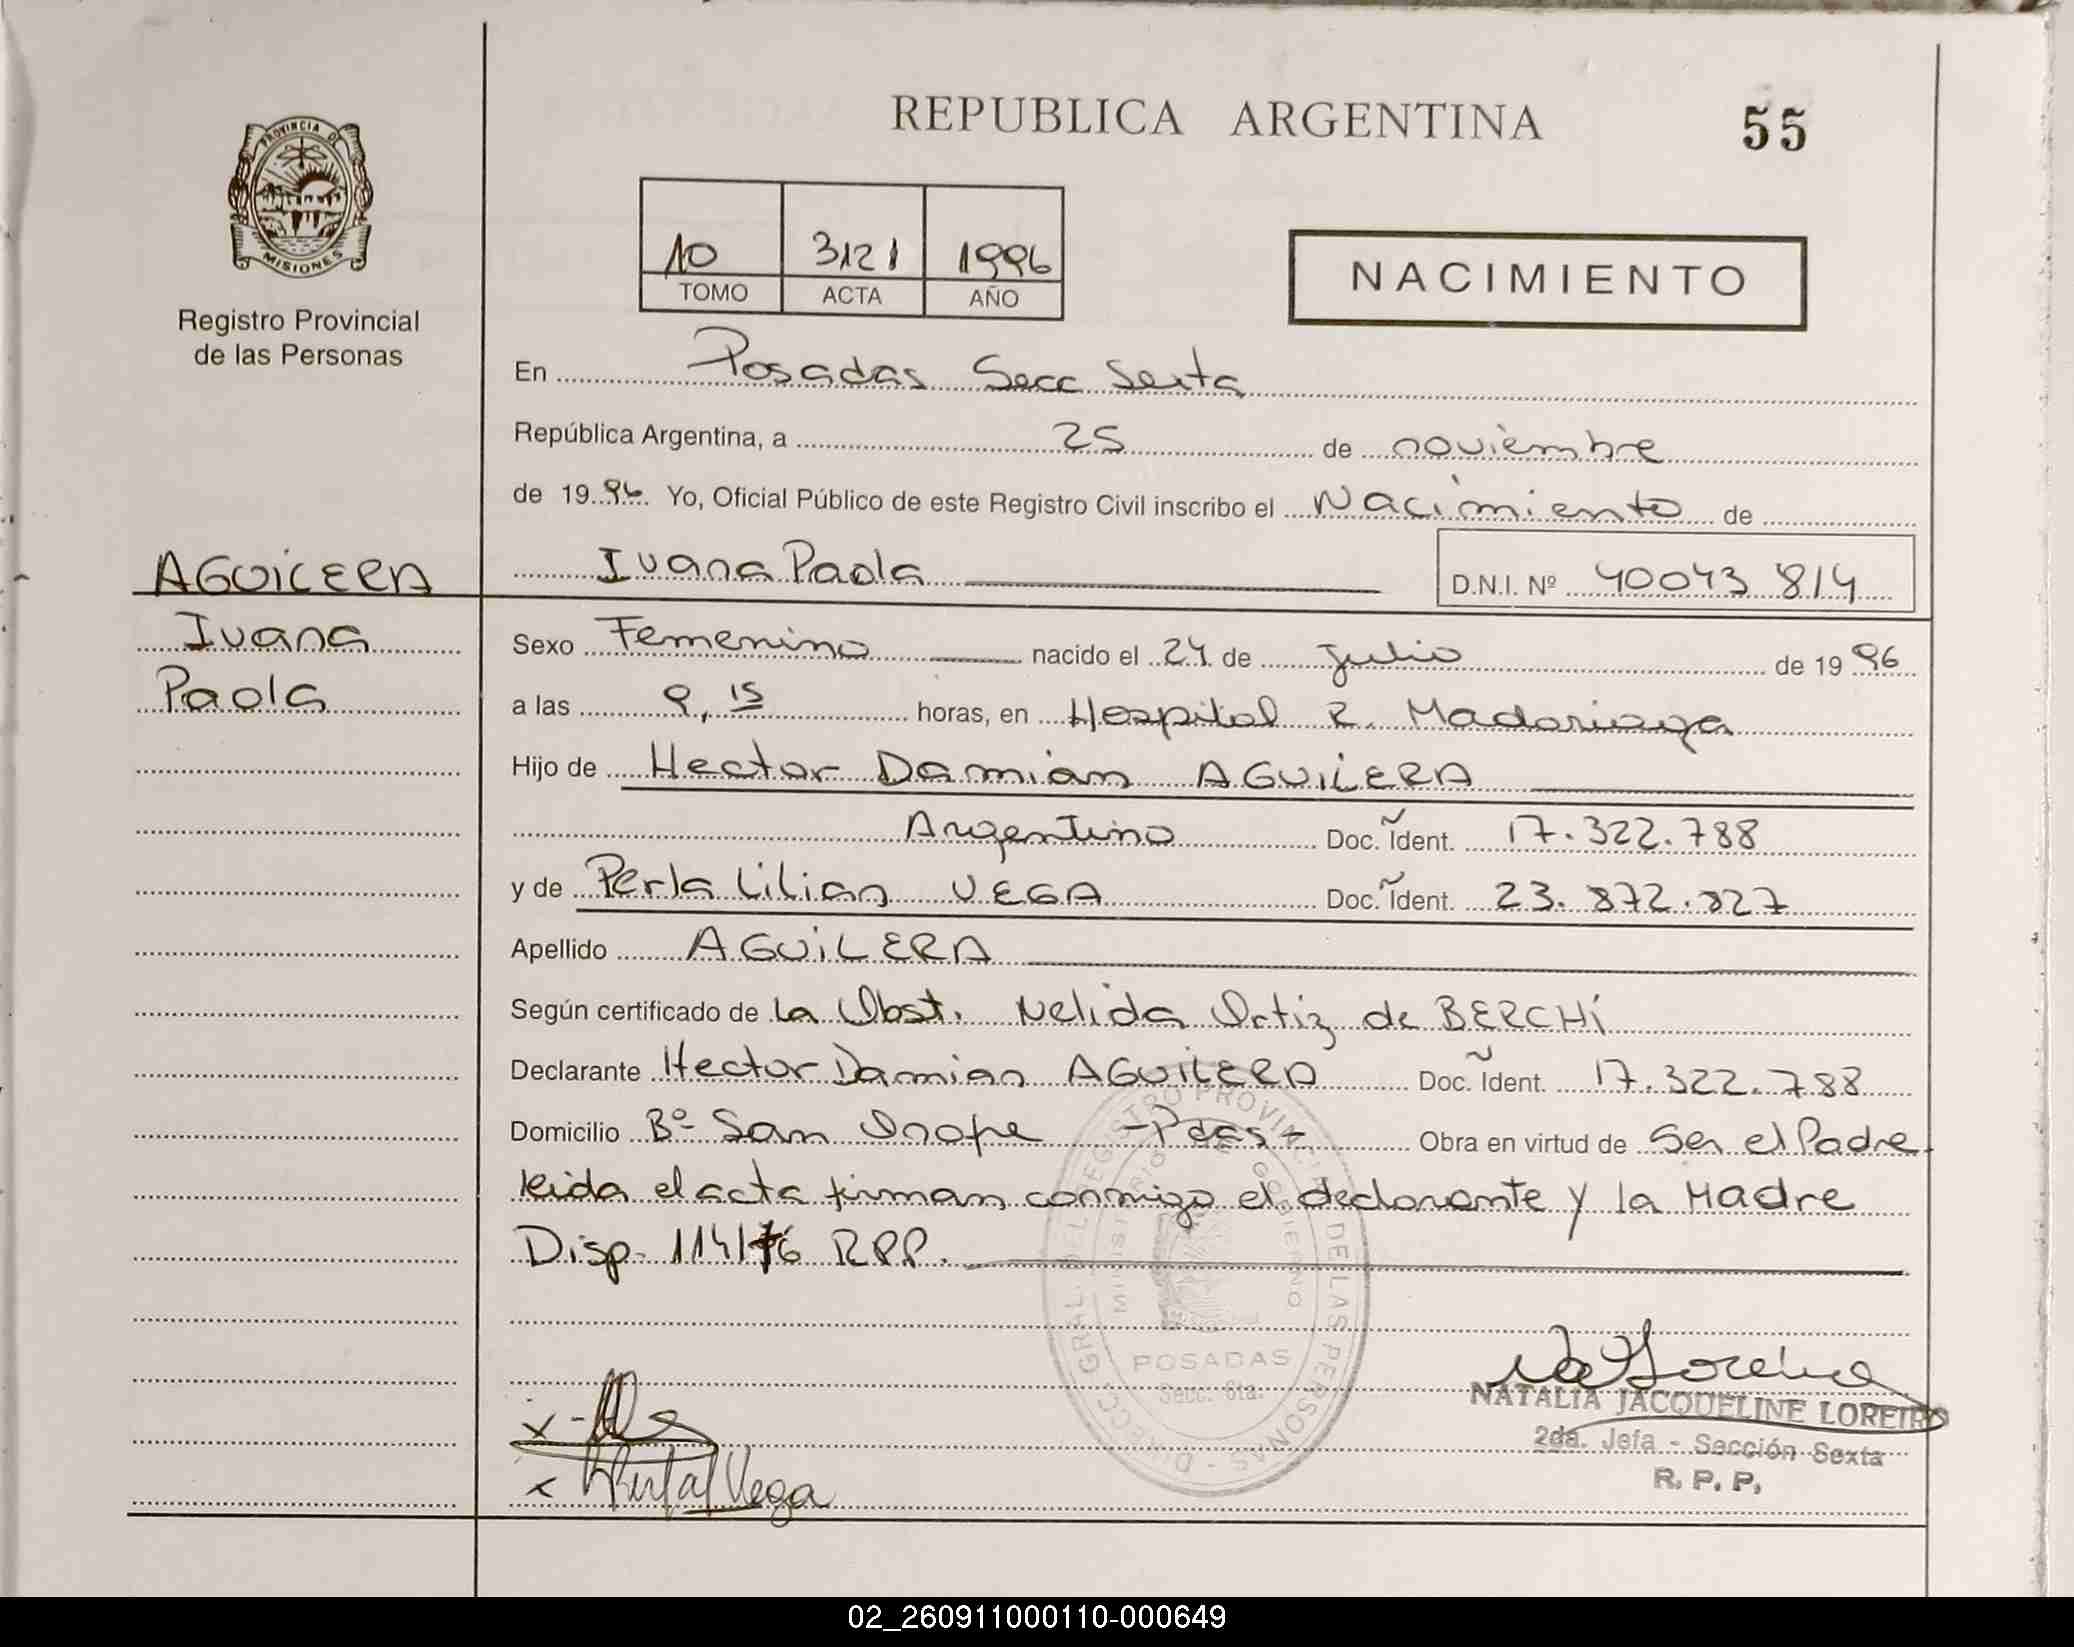 REPUBLICA ARGENTINA
55
PROVINCIA DE
MISIONES
Registro Provincial
de las Personas
10 3121 1996
TOMO ACTA AÑO
NACIMIENTO
En Posadas Secc Sexta
República Argentina, a 25 de noviembre
de 1996. Yo, Oficial Público de este Registro Civil inscribo el Nacimiento de
AGUILERA
Ivana
Paola
Ivana Paola D.N.I. Nº 40043814
Sexo Femenino nacido el 24 de Julio de 1996
a las 9,15 horas, en Hospital R. Madariaga
Hijo de Hector Damian AGUILERA
Argentino Doc. Ident. 17.322.788
y de Perla Lilian VEGA Doc. Ident. 23.872.827
Apellido AGUILERA
Según certificado de La Obst. Nelida Ortiz de BERCHÍ
Declarante Hector Damian AGUILERA Doc. Ident. 17.322.788
Domicilio Bº San Onofre -Pdas- Obra en virtud de Ser el Padre
leida el acta firman conmigo el declarante y la Madre
Disp. 114/76 RPP.
DIRECC. GRAL. DEL REGISTRO PROVINCIAL DE LAS PERSONAS
MINISTERIO DE GOBIERNO
POSADAS
Secc. 6ta.
NATALIA JACQUELINE LOREIRO
2da. Jefa - Sección Sexta
R. P. P.
x
x Perla L Vega
02_260911000110-000649